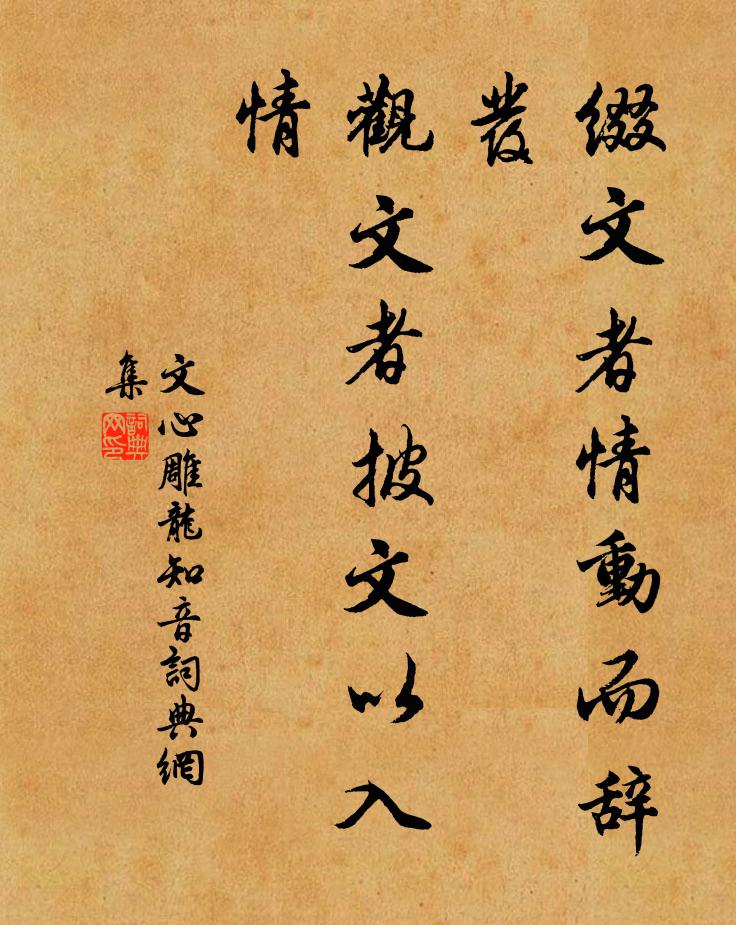 綴文者情動而辞
發
觀文者披文以入
情
文心雕龍知音詞典網
集
詞典网印